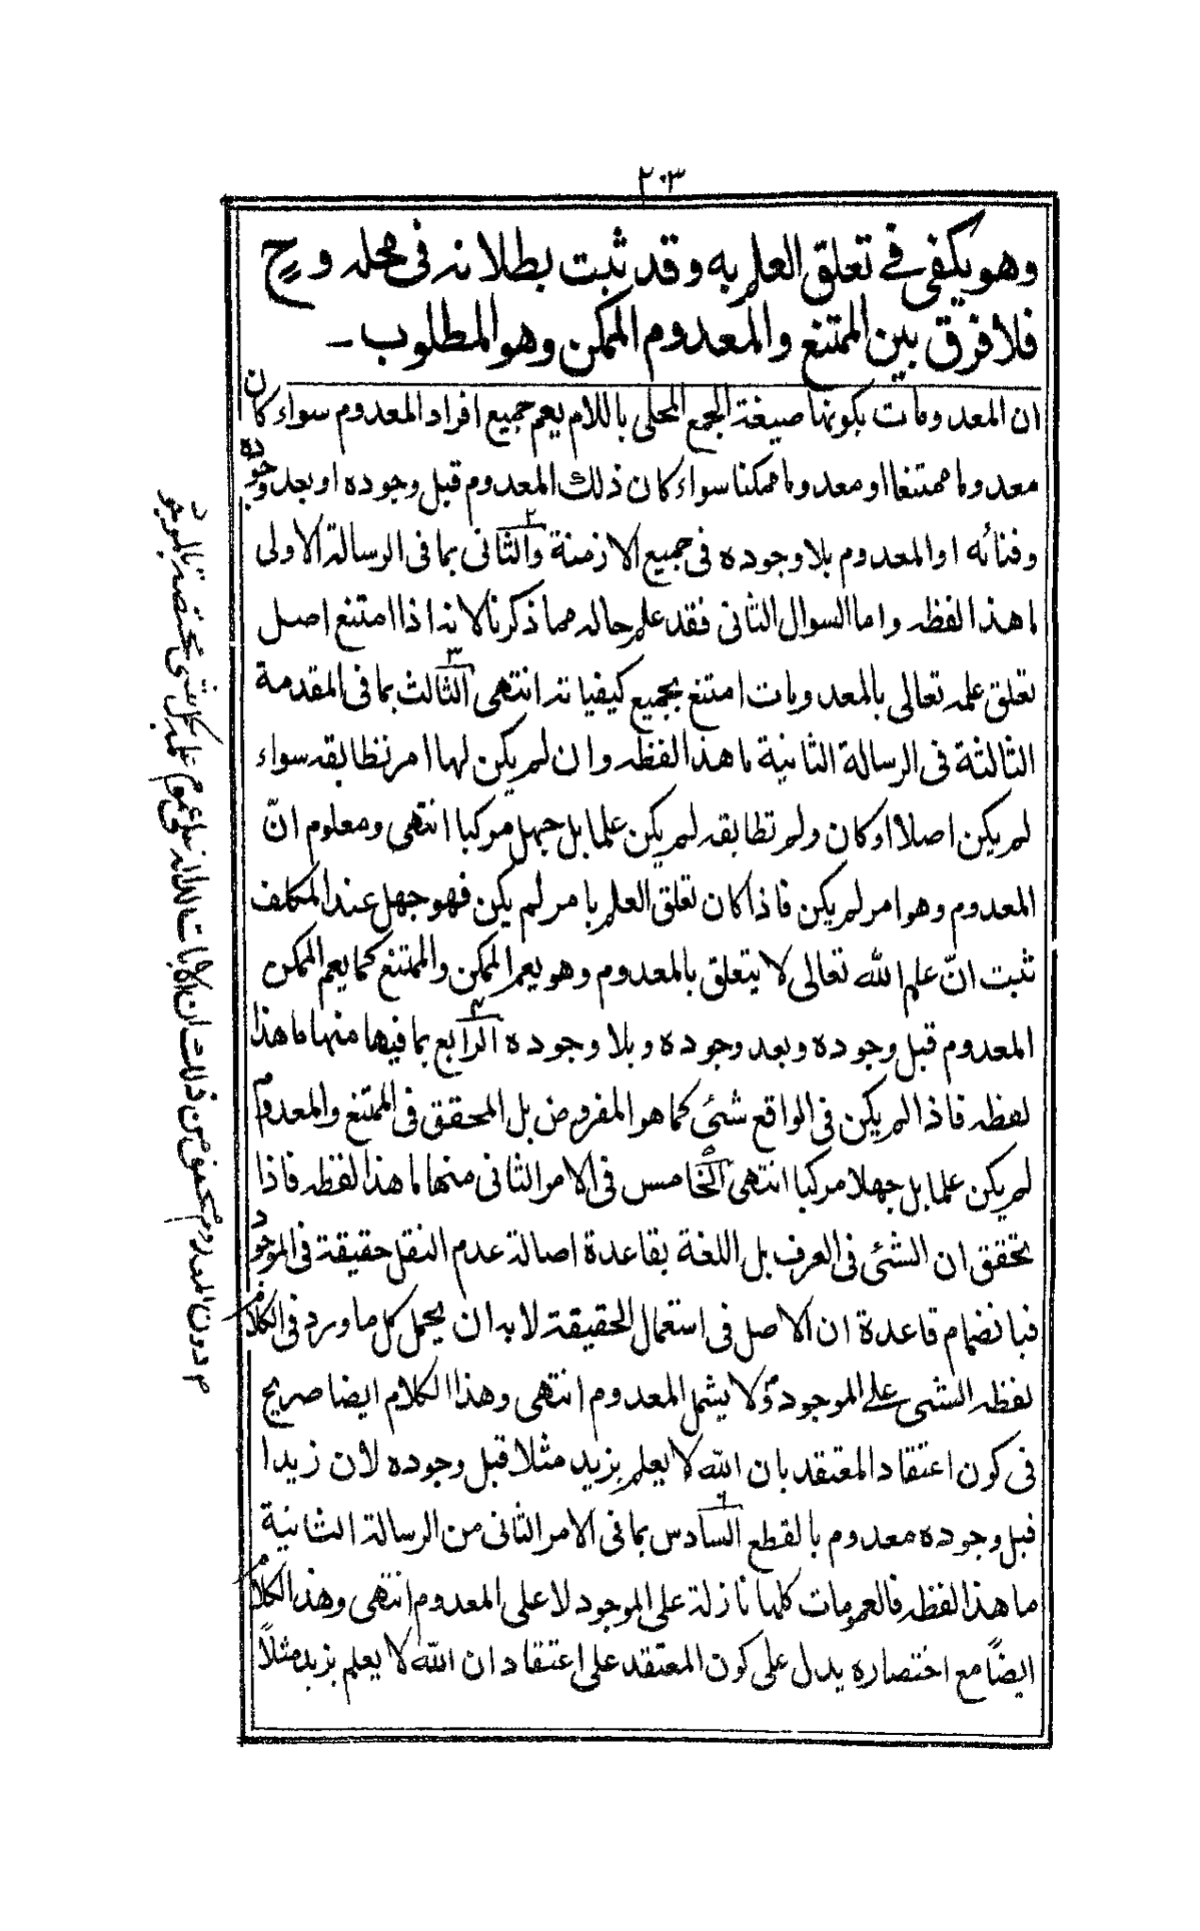 ٢٠٣
وهو يكفى فى تعلق العلم به وقد ثبت بطلانه فى محله وح
فلا فرق بين الممتنع والمعدوم الممكن وهو المطلوب ـ
ان المعدومات بكونها صيغة الجمع المحلى باللام يعم جميع افراد المعدوم سواء كان
معدوما ممتنعا او معدوما ممكنا سواء كان ذلك المعدوم قبل وجوده او بعد وجوده
وفنائه او المعدوم بلا وجوده فى جميع الازمنة والثانى بما فى الرسالة الاولى
ما هذا لفظه واما السوال الثانى فقد علم حاله مما ذكرنا لانه اذا امتنع اصل
تعلق علمه تعالى بالمعدومات امتنع بجميع كيفياته انتهى الثالث بما فى المقدمة
الثالثة فى الرسالة الثانية ما هذا لفظه وان لم يكن لها امر تطابقه سواء
لم يكن اصلا او كان ولم تطابقه لم يكن علما بل جهل مركبا انتهى ومعلوم انّ
المعدوم وهو امر لم يكن فاذا كان تعلق العلم بامر لم يكن فهو جهل عند المكلف
ثبت انّ علم الله تعالى لا يتعلق بالمعدوم وهو يعم الممكن والممتنع كما يعم الممكن
المعدوم قبل وجوده وبعد وجوده وبلا وجوده الرابع بما فيها منها ما هذا
لفظه فاذا لم يكن فى الواقع شئى كما هو المفروض بل المحقق فى الممتنع والمعدوم
لم يكن علما بل جهلا مركبا انتهى الخامس فى الامر الثانى منها ما هذا لفظه فاذا
تحقق ان الشئى فى العرف بل اللغة بقاعدة اصالة عدم النقل حقيقة فى الموجود
فبانضمام قاعدة ان الاصل فى استعمال الحقيقة لابد ان يحمل كل ما ورد فى الكلام
لفظه الشئى على الموجود ولا يشمل المعدوم انتهى وهذا الكلام ايضا صريح
فى كون اعتقاد المعتقد بان الله لا يعلم بزيد مثلا قبل وجوده لان زيدا
قبل وجوده معدوم بالقطع السادس بما فى الامر الثانى من الرسالة الثانية
ما هذا لفظه فالعمومات كلها نازلة على الموجود لا على المعدوم انتهى وهذا الكلام
ايضاً مع اختصاره يدل على كون المعتقد على اعتقاد ان الله لا يعلم بزيد مثلاً
من ذلك ان الايات الدالة على عموم علمه بكل شئى مختصة بالموجود
دون المعدوم